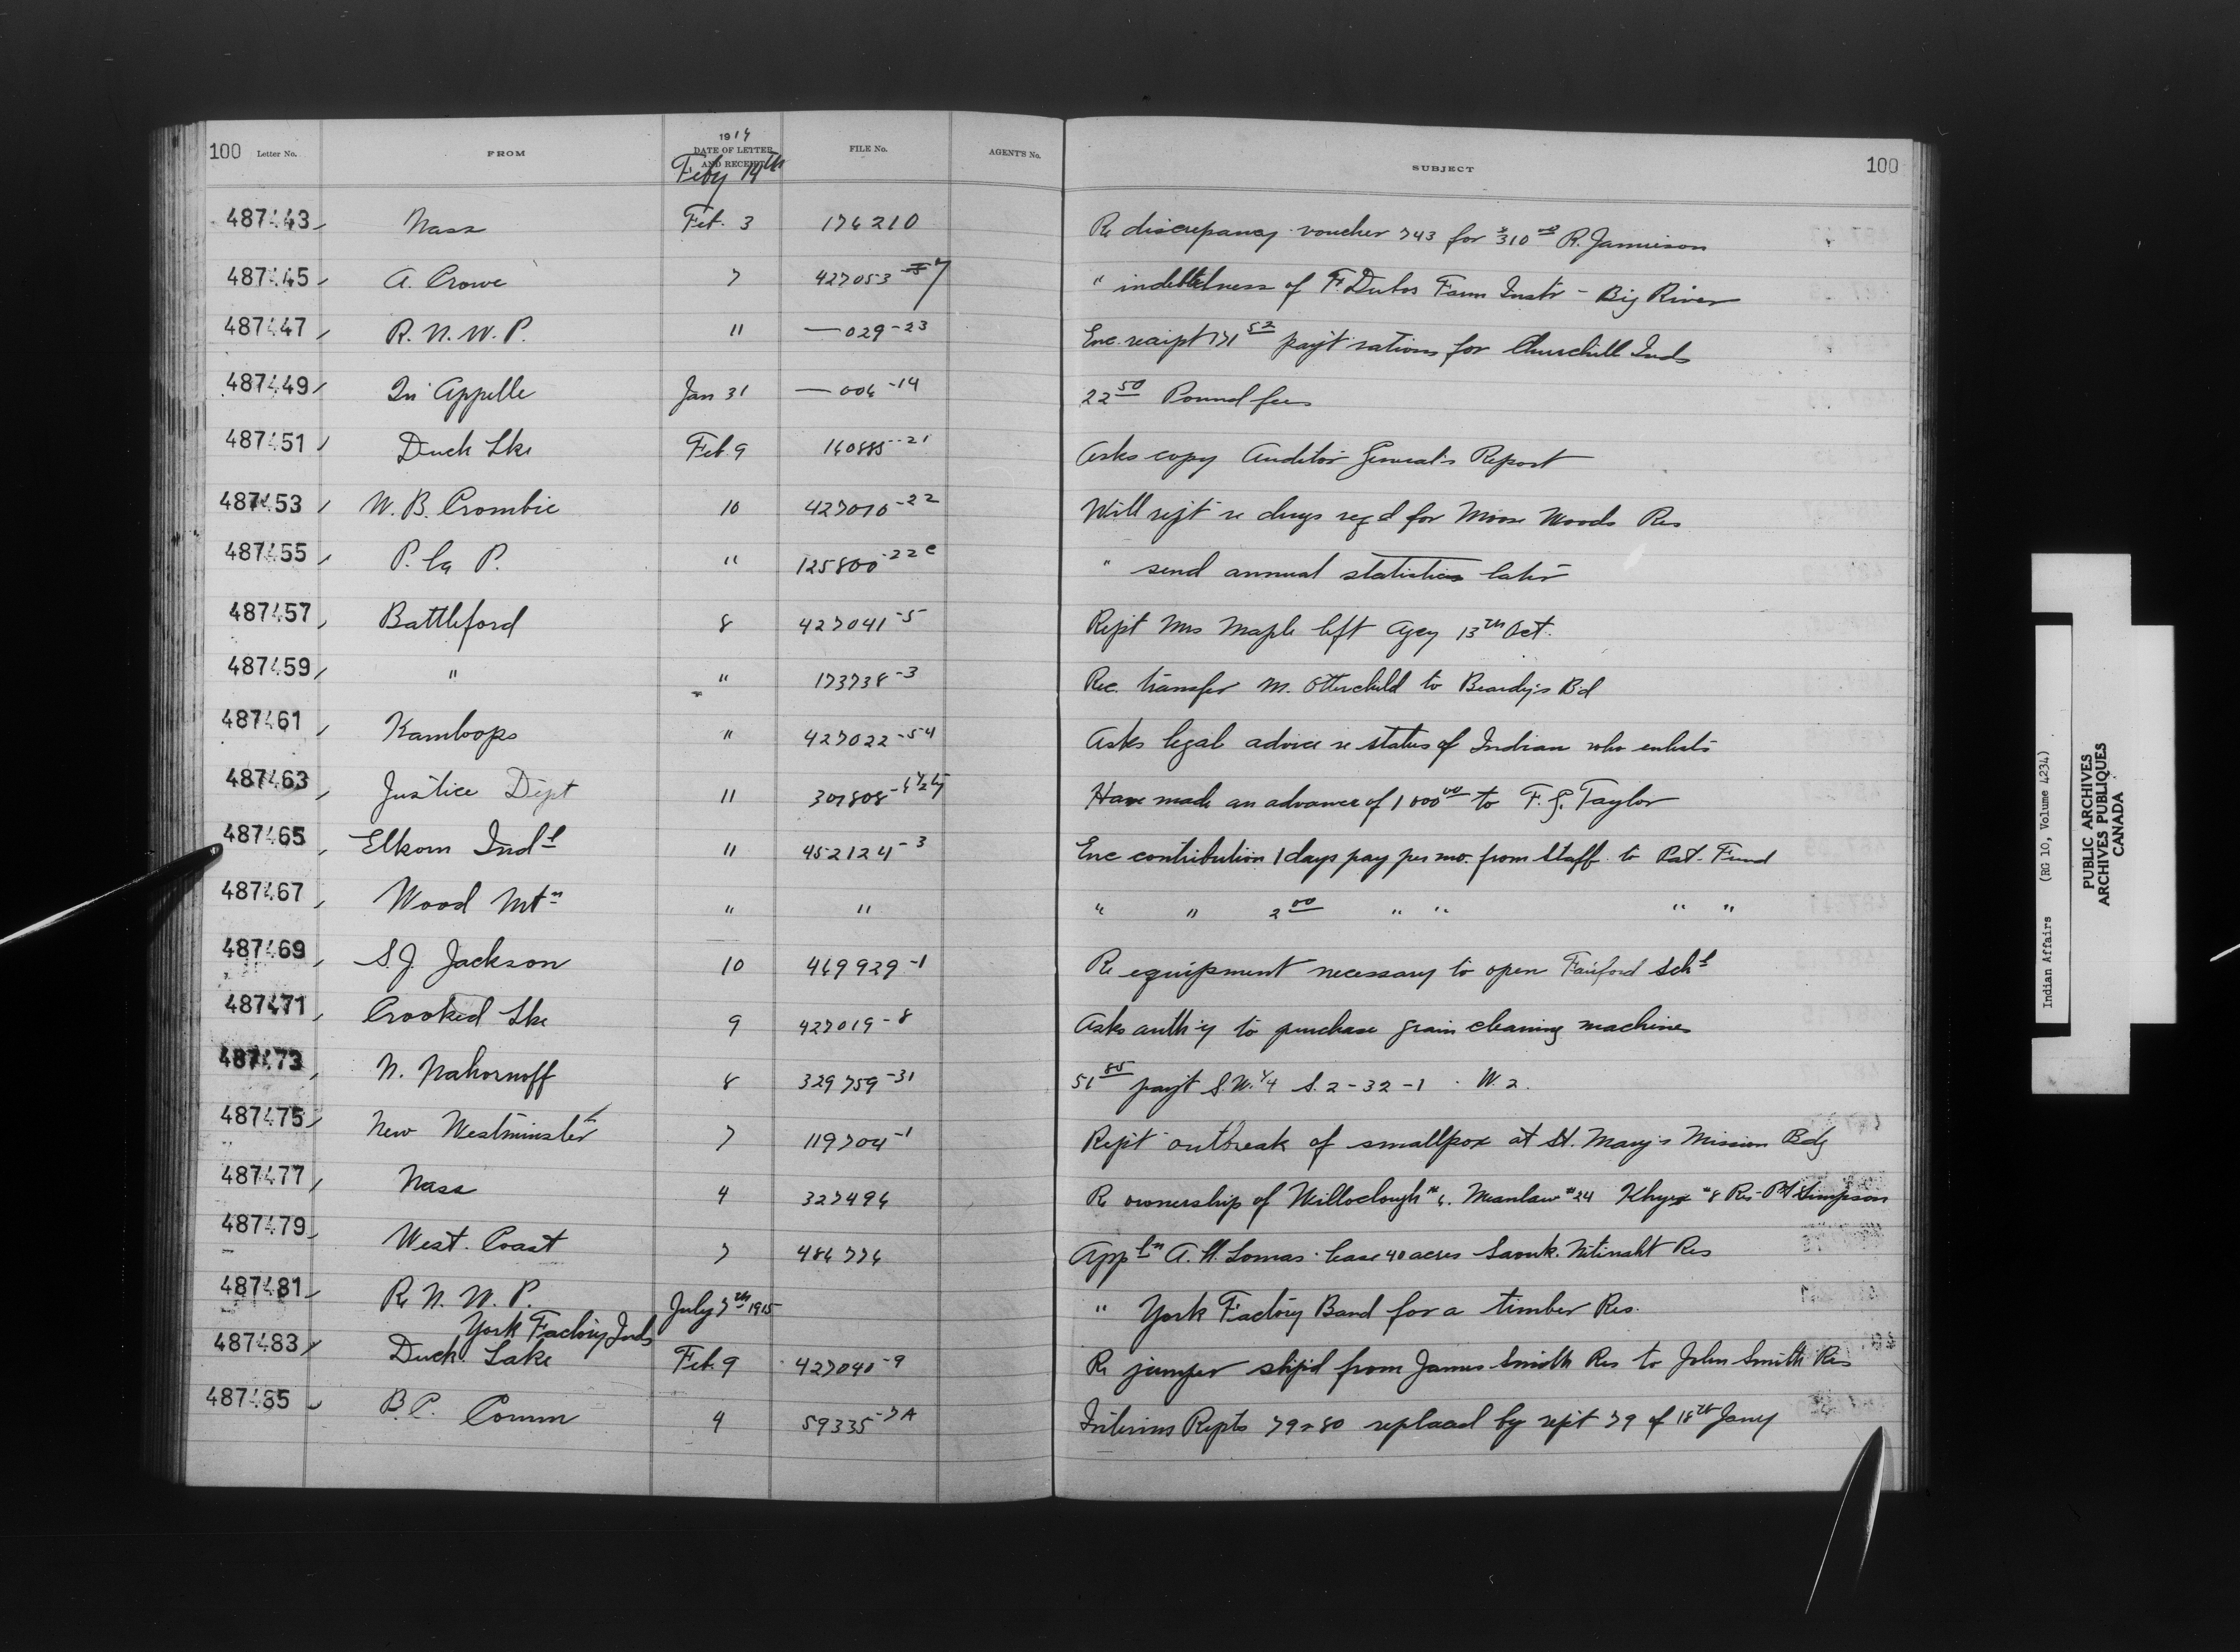 100 Letter No. FROM 1914 DATE OF LETTER AND RECEIPT FILE No. AGENT'S No. SUBJECT 100
Feby 14th
487443 Nass Feb. 3 174210 Re discrepancy voucher 743 for $310 00 R. Jamieson
487445 A. Crowe 7 427053 " indebtedness of F. Dubos Farm Instr - Big River
487447 R. N. W. P. 11 — 029-23 Enc. receipt 171 52 payt rations for Churchill Inds
487449 Qu Appelle Jan 31 — 006-14 22 50 Pound fees
487451 Duck Lke Feb. 9 160885-21 Asks copy Auditor General's Report
487453 W. B. Crombie 10 427010-22 Will rept re drugs reqd for Moose Woods Res
487455 P. la P. " 125800-22c " send annual statistics later
487457 Battleford 8 427041-5 Rept Mrs Maple left Agcy 13th Oct.
487459 " " 173738-3 Rec. transfer M. Otterchild to Beardy's Bd
487461 Kamloops " 427022-54 Asks legal advice re status of Indian who enlists
487463 Justice Dept 11 301808 Have made an advance of 1000 00 to F. G. Taylor
487465 Elkorn Indl 11 452124-3 Enc contribution 1 days pay per mo. from staff to Pat. Fund
487467 Wood Mtn " " " " 2 00 " " " "
487469 S. J. Jackson 10 469929-1 Re equipment necessary to open Fairford Schl
487471 Crooked Lke 9 427019-8 Asks auth'y to purchase grain cleaning machines
487473 N. Nahornoff 8 329759-31 51 85 payt S.W. 1/4 S. 2-32-1 . W 2.
487475 New Westminster 7 119704-1 Rept outbreak of smallpox at St. Mary's Mission Bdg
487477 Nass 4 327496 Re ownership of Willoclough #6. Meanlaw #24 Khyex #8 Res - Pt Simpson
487479 West. Coast 7 486776 Appln A. W. Lomas lease 40 acres Saouk. Nitinaht Res
487481 R. N. W. P. July 7th 1915 " York Factory Band for a timber Res.
York Factory Inds
487483 Duck. Lake Feb. 9 427040-9 Re jumper shipd from James Smith Res to John Smith Res
487485 B. C. Comm 4 59335-7A Interims Repts 79 & 80 replaced by rept 79 of 18th Jany
Indian Affairs (RG 10, Volume 4234)
PUBLIC ARCHIVES
ARCHIVES PUBLIQUES
CANADA